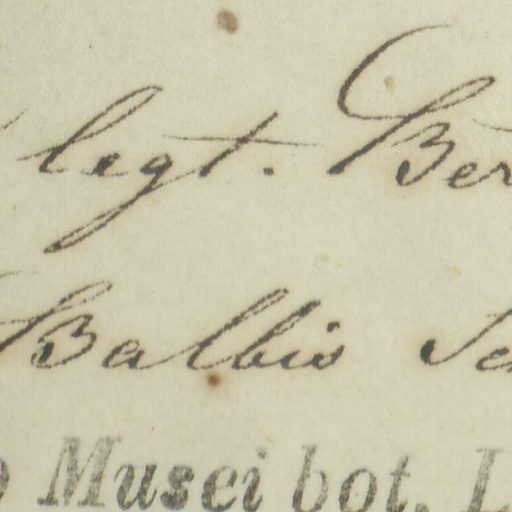 legt. Ber
Balbis
Musei bot. L